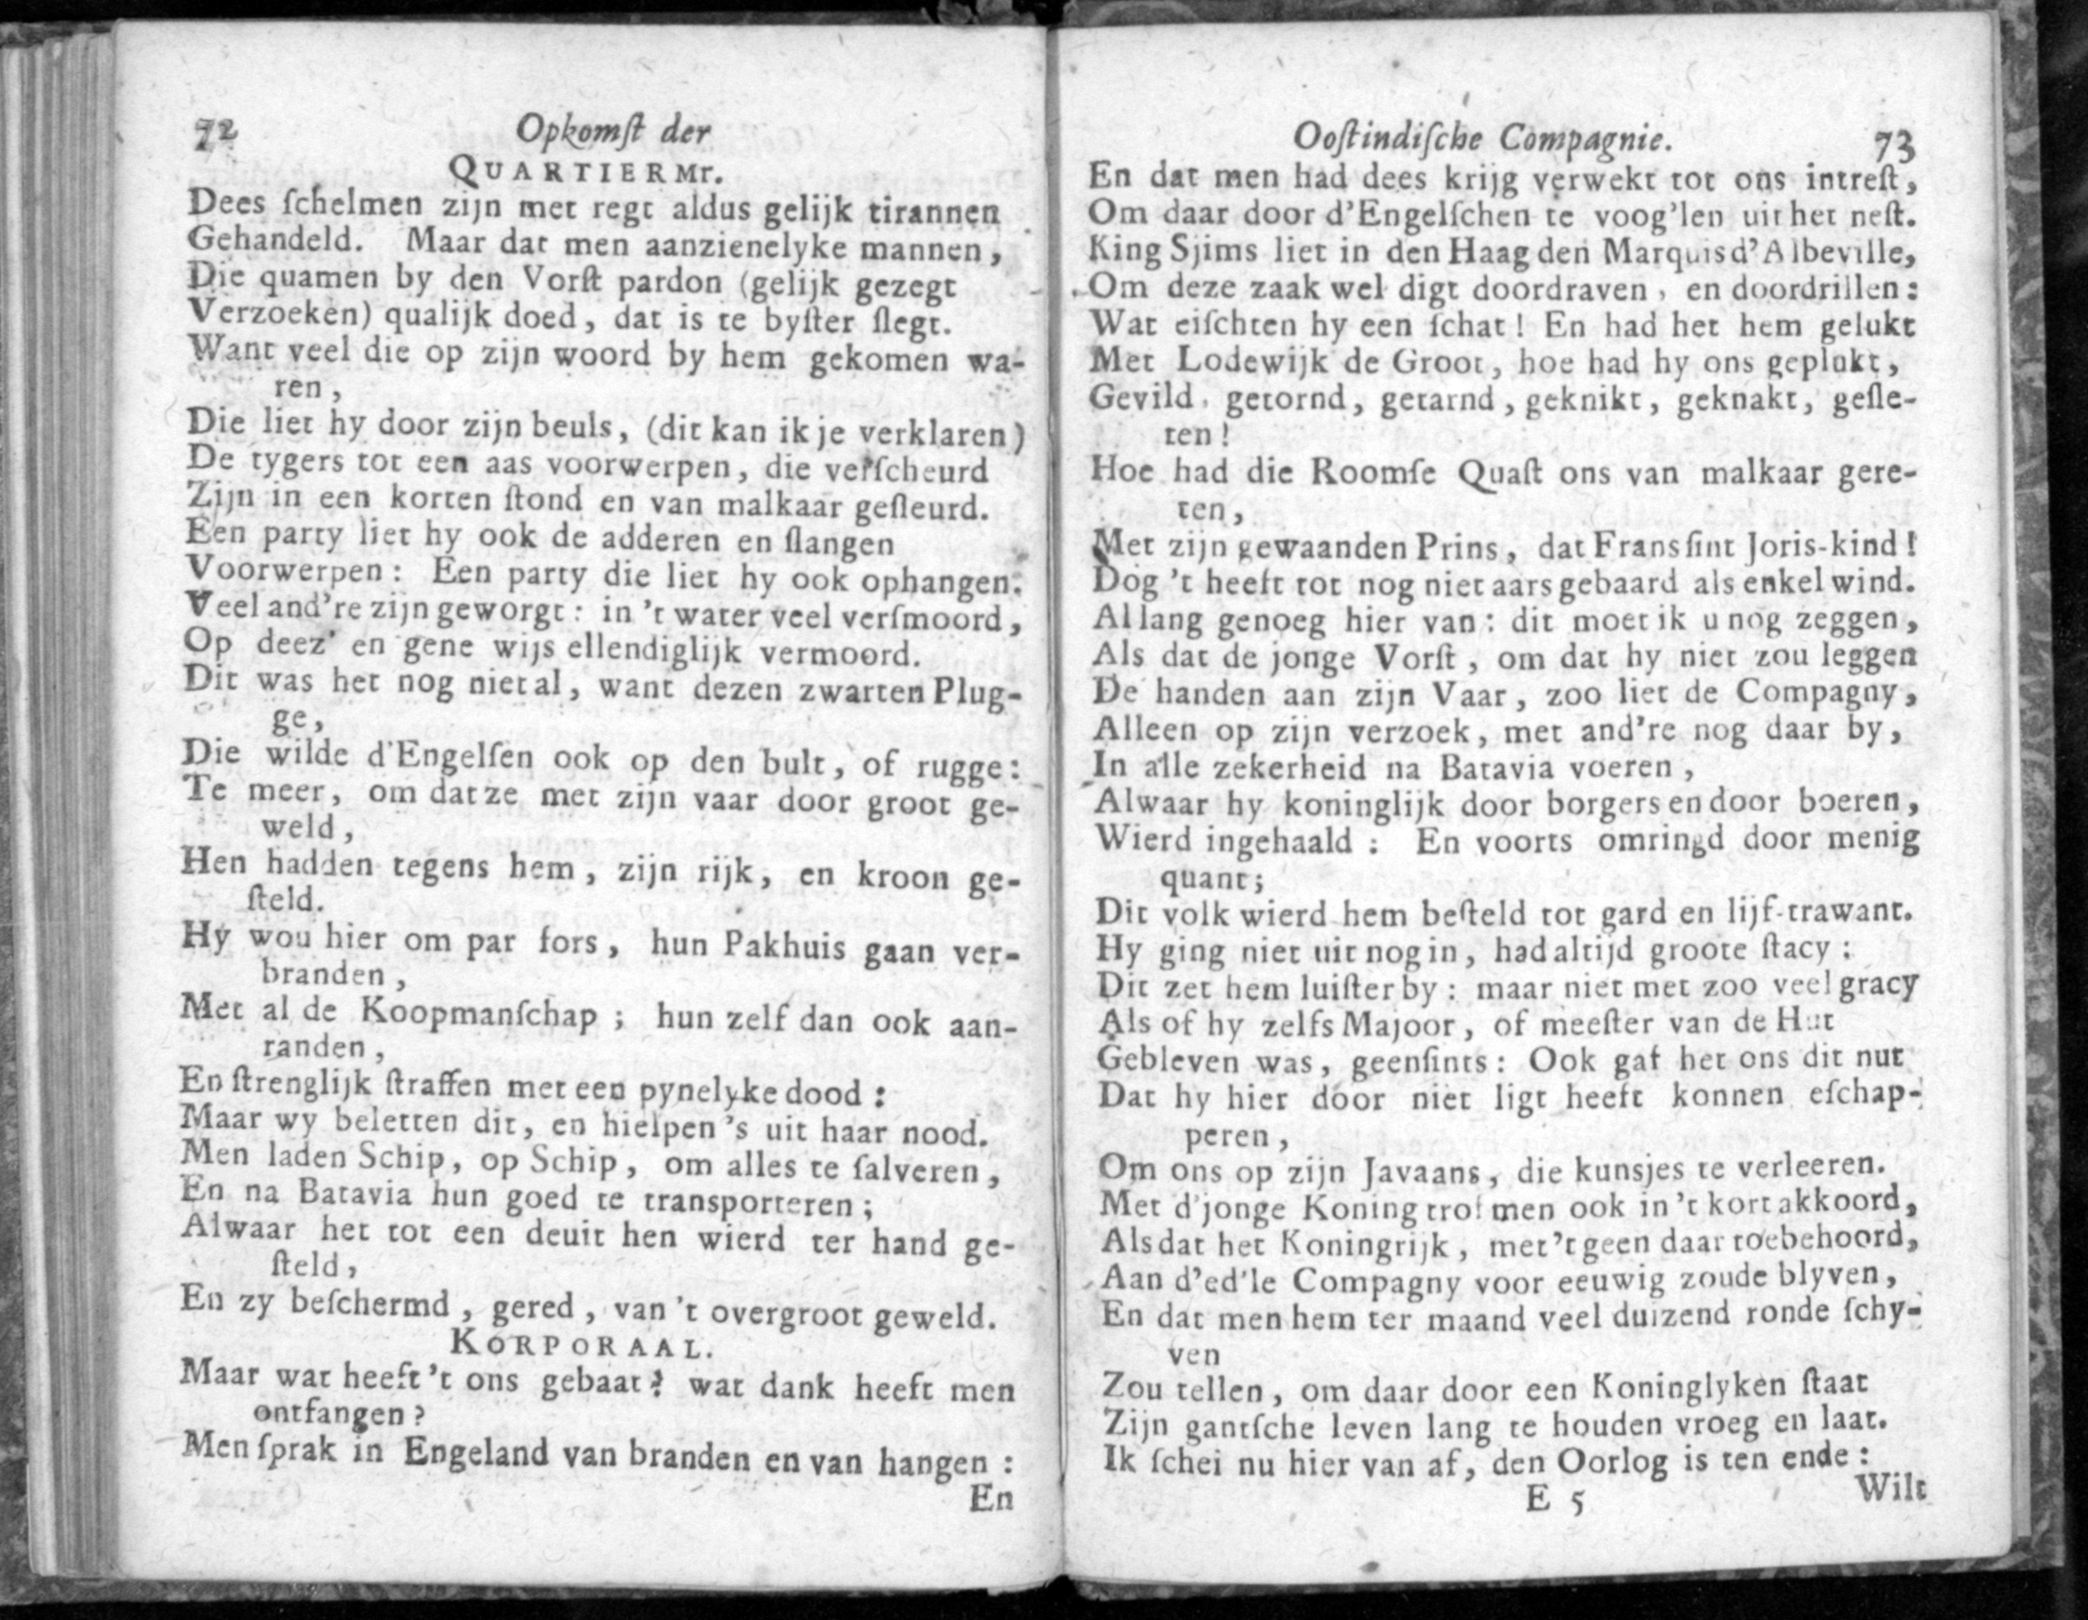 72 Opkomſt der
QUARTIERMr.
Dees ſchelmen zijn met regt aldus gelijk tirannen
Gehandeld. Maar dat men aanzienelyke mannen,
Die quamen by den Vorſt pardon (gelijk gezegt
Verzoeken) qualijk doed, dat is te byſter ſlegt.
Want veel die op zijn woord by hem gekomen wa-
ren,
Die liet hy door zijn beuls, (dit kan ik je verklaren)
De tygers tot een aas voorwerpen, die verſcheurd
Zijn in een korten ſtond en van malkaar geſleurd.
Een party liet hy ook de adderen en ſlangen
Voorwerpen: Een party die liet hy ook ophangen:
Veel and're zijn geworgt: in 't water veel verſmoord,
Op deez' en gene wijs ellendiglijk vermoord.
Dit was het nog niet al, want dezen zwarten Plug-
ge,
Die wilde d'Engelſen ook op den bult, of rugge:
Te meer, om dat ze met zijn vaar door groot ge-
weld,
Hen hadden tegens hem, zijn rijk, en kroon ge-
ſteld.
Hy wou hier om par fors, hun Pakhuis gaan ver-
branden,
Met al de Koopmanſchap; hun zelf dan ook aan-
randen,
En ſtrenglijk ſtraffen met een pynelyke dood:
Maar wy beletten dit, en hielpen 's uit haar nood.
Men laden Schip, op Schip, om alles te ſalveren,
En na Batavia hun goed te transporteren;
Alwaar het tot een deuit hen wierd ter hand ge-
ſteld,
En zy beſchermd, gered, van 't overgroot geweld.
KORPORAAL.
Maar wat heeft 't ons gebaat? wat dank heeft men
ontfangen?
Men ſprak in Engeland van branden en van hangen:
En
Ooſtindiſche Compagnie. 73
En dat men had dees krijg verwekt tot ons intreſt,
Om daar door d'Engelſchen te voog'len uit het neſt.
King Sjims liet in den Haag den Marquis d'Albeville,
Om deze zaak wel digt doordraven, en doordrillen:
Wat eiſchten hy een ſchat! En had het hem gelukt
Met Lodewijk de Groot, hoe had hy ons geplukt,
Gevild, getornd, getarnd, geknikt, geknakt, geſle-
ten!
Hoe had die Roomſe Quaſt ons van malkaar gere-
ten,
Met zijn gewaanden Prins, dat Frans ſint Joris-kind!
Dog 't heeft tot nog niet aars gebaard als enkel wind.
Al lang genoeg hier van: dit moet ik u nog zeggen,
Als dat de jonge Vorſt, om dat hy niet zou leggen
De handen aan zijn Vaar, zoo liet de Compagny,
Alleen op zijn verzoek, met and're nog daar by,
In alle zekerheid na Batavia voeren,
Alwaar hy koninglijk door borgers en door boeren,
Wierd ingehaald: En voorts omringd door menig
quant;
Dit volk wierd hem beſteld tot gard en lijf-trawant.
Hy ging niet uit nog in, had altijd groote ſtacy:
Dit zet hem luiſter by: maar niet met zoo veel gracy
Als of hy zelfs Majoor, of meeſter van de Hut
Gebleven was, geenſints: Ook gaf het ons dit nut
Dat hy hier door niet ligt heeft konnen eſchap-
peren,
Om ons op zijn Javaans, die kunsjes te verleeren.
Met d'jonge Koning trof men ook in 't kort akkoord,
Als dat het Koningrijk, met 't geen daar toebehoord,
Aan d'ed'le Compagny voor eeuwig zoude blyven,
En dat men hem ter maand veel duizend ronde ſchy-
ven
Zou tellen, om daar door een Koninglyken ſtaat
Zijn gantſche leven lang te houden vroeg en laat.
Ik ſchei nu hier van af, den Oorlog is ten ende:
E 5 Wilt